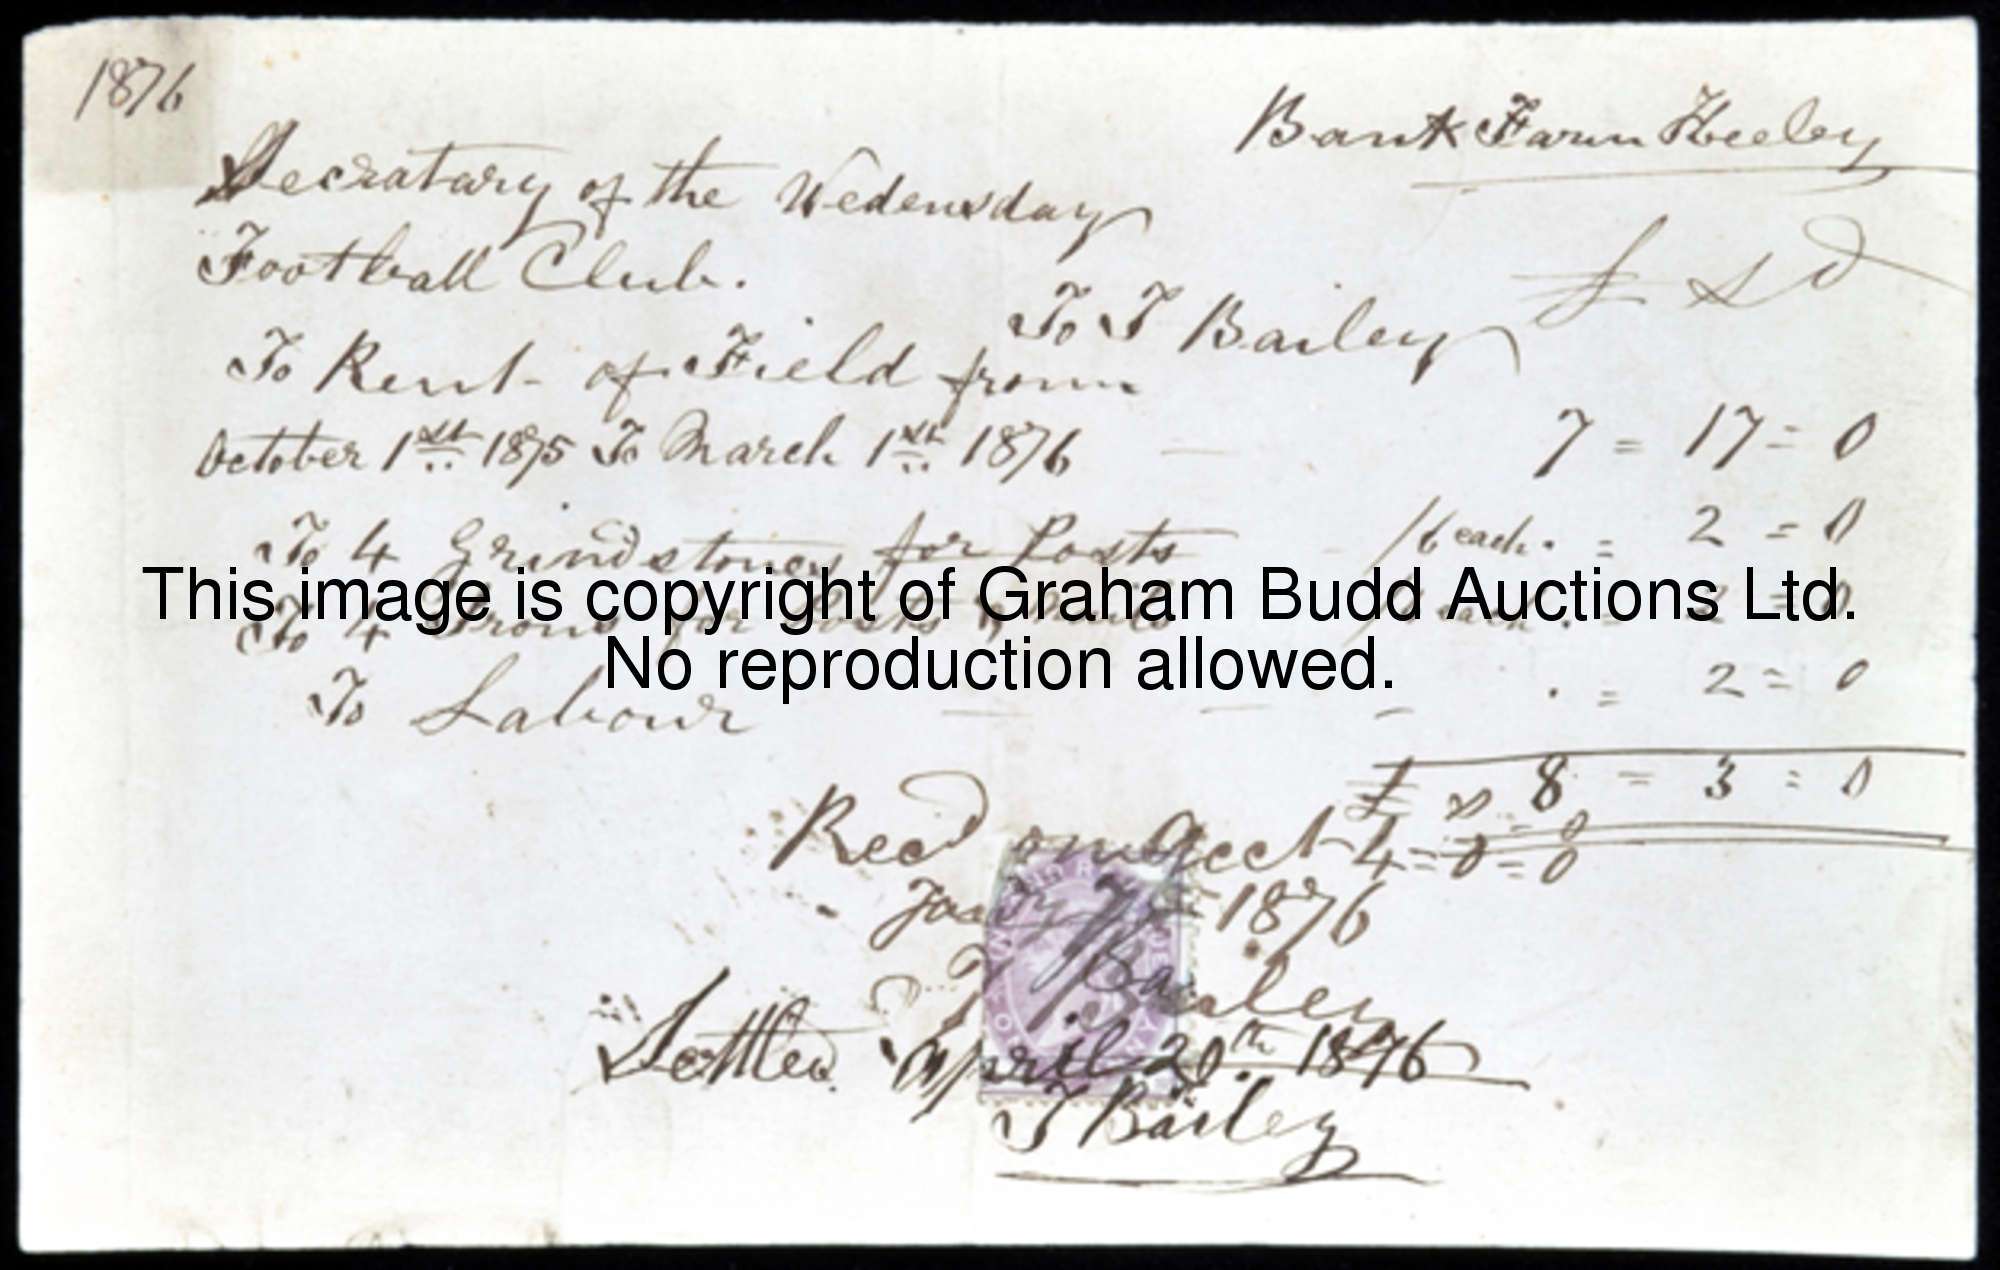 1876
Bank Farm Heeley
Secratary of the Wedensday
Football Club.
£ S D
To T Bailey
To Rent of Field from
October 1st 1875 To March 1st 1876 7 = 17 = 0
To 4 Grindstones for Posts /6 each. = 2 = 0
This image is copyright of Graham Budd Auctions Ltd.
To 4 Irons for Posts each. = 2 = 0
No reproduction allowed.
To Labour . = 2 = 0
£ 8 = 3 = 0
Recd on Acct 4 = 0 = 0
1876
T Bailey
Settled April 20th 1876
T Bailey